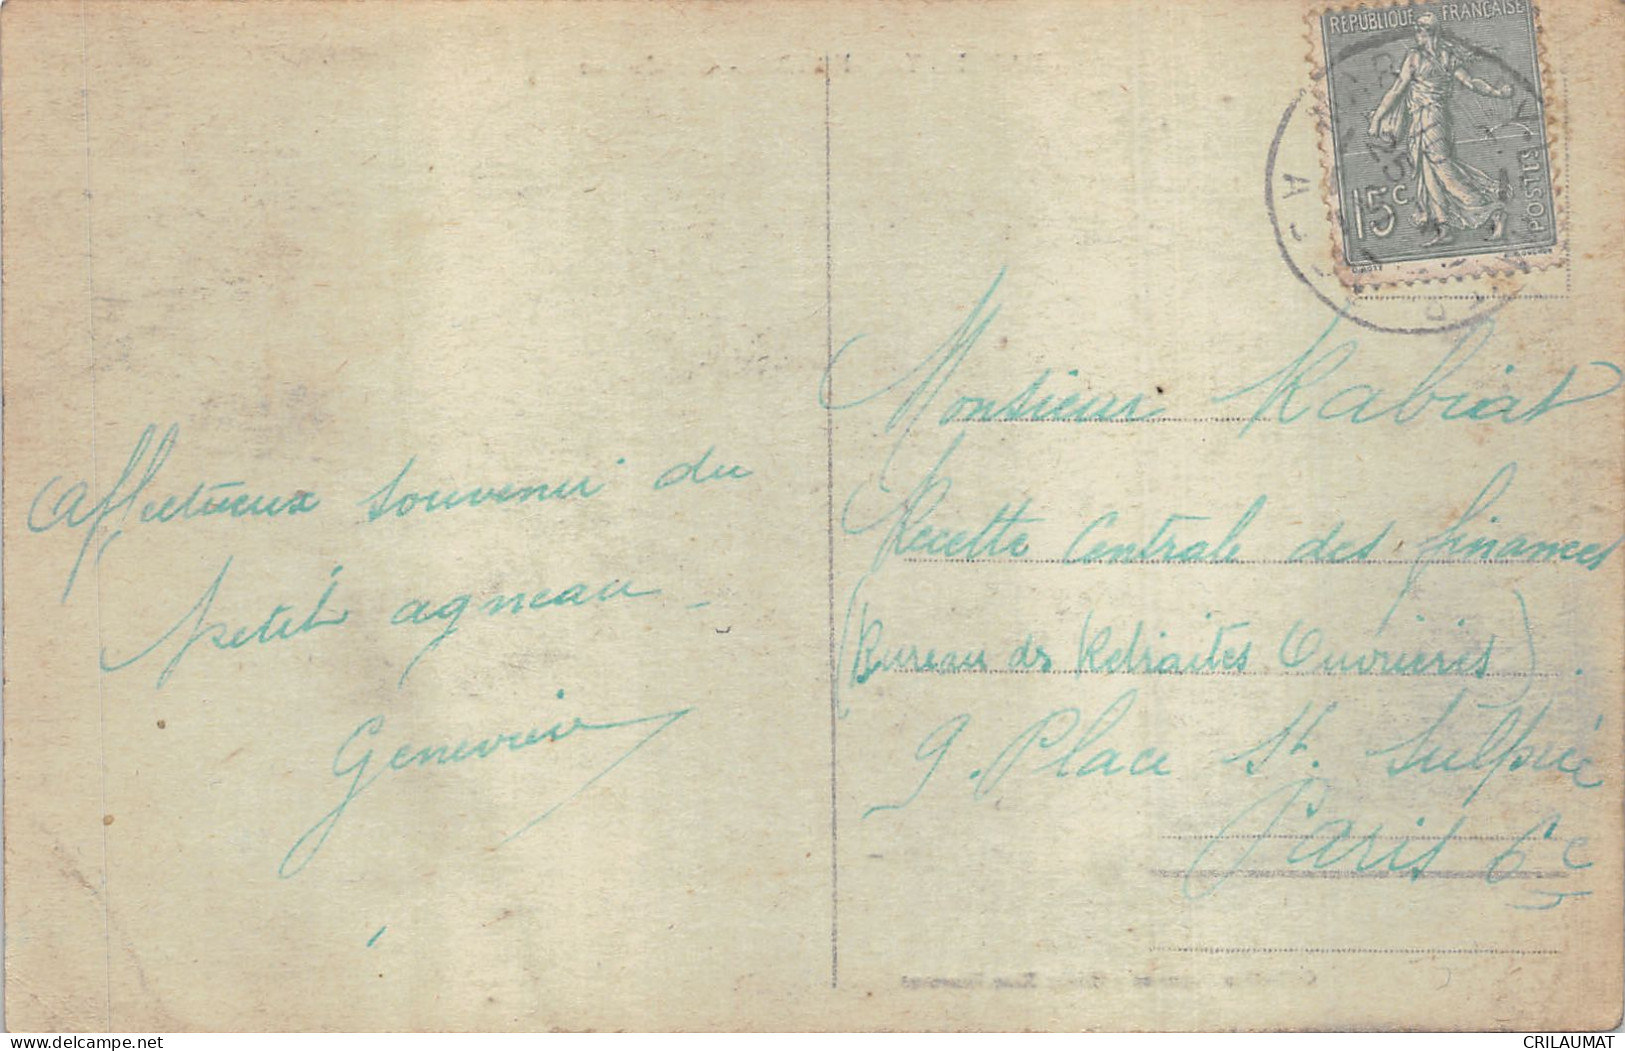 RÉPUBLIQUE FRANÇAISE
15c
POSTES
Affectueux souvenir du
petit agneau
Geneviève
Monsieur Rabiat
Recette Centrale des finances
(Bureau des Retraites Ouvrières)
9. Place St. Sulpice
Paris 6e
CRILAUMAT